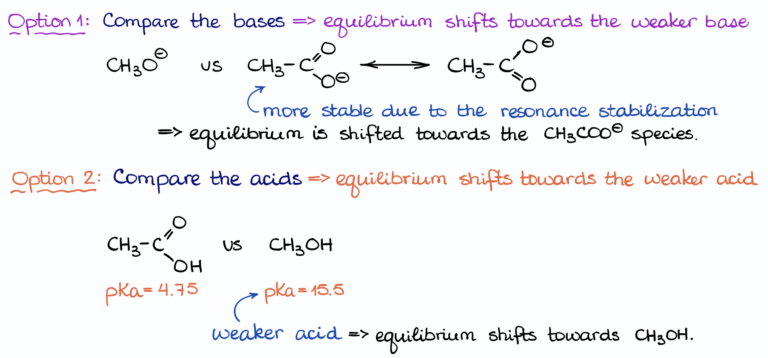 Option 1: Compare the bases => equilibrium shifts towards the weaker base
CH₃O⊖ vs CH₃-C O O⊖ ⟷ CH₃-C O⊖ O
more stable due to the resonance stabilization
=> equilibrium is shifted towards the CH₃COO⊖ species.
Option 2: Compare the acids => equilibrium shifts towards the weaker acid
CH₃-C O OH vs CH₃OH
pKa = 4.75 pKa = 15.5
weaker acid => equilibrium shifts towards CH₃OH.